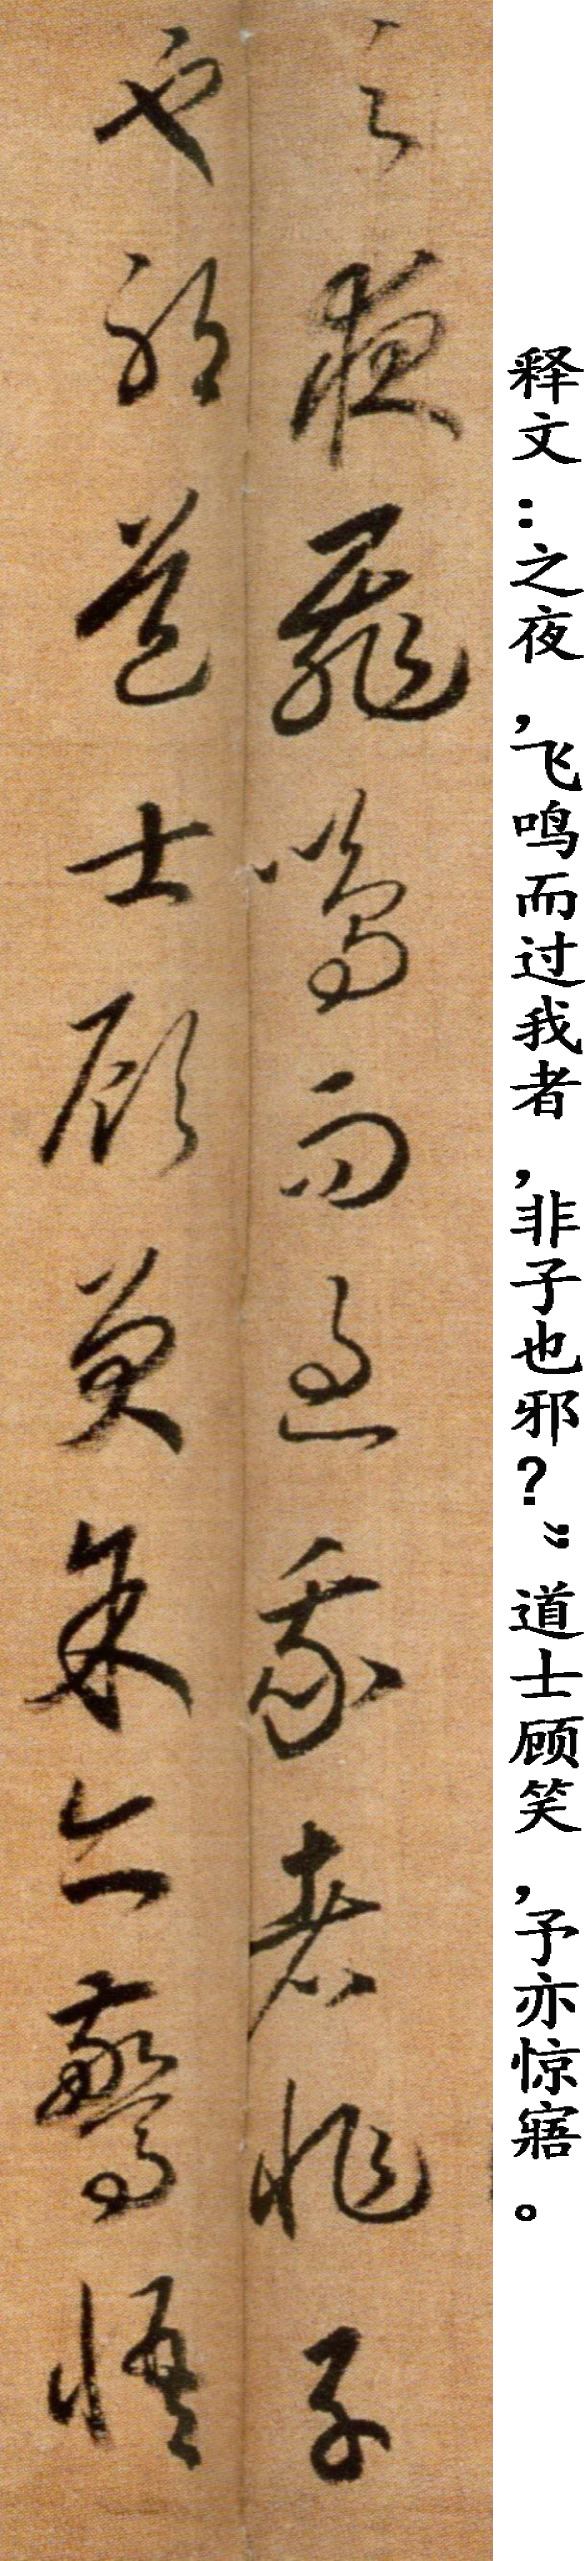 释文：之夜，飞鸣而过我者，非子也邪？”道士顾笑，予亦惊寤。
之夜飛鳴而過我者非子
也邪道士顧笑余亦驚悟